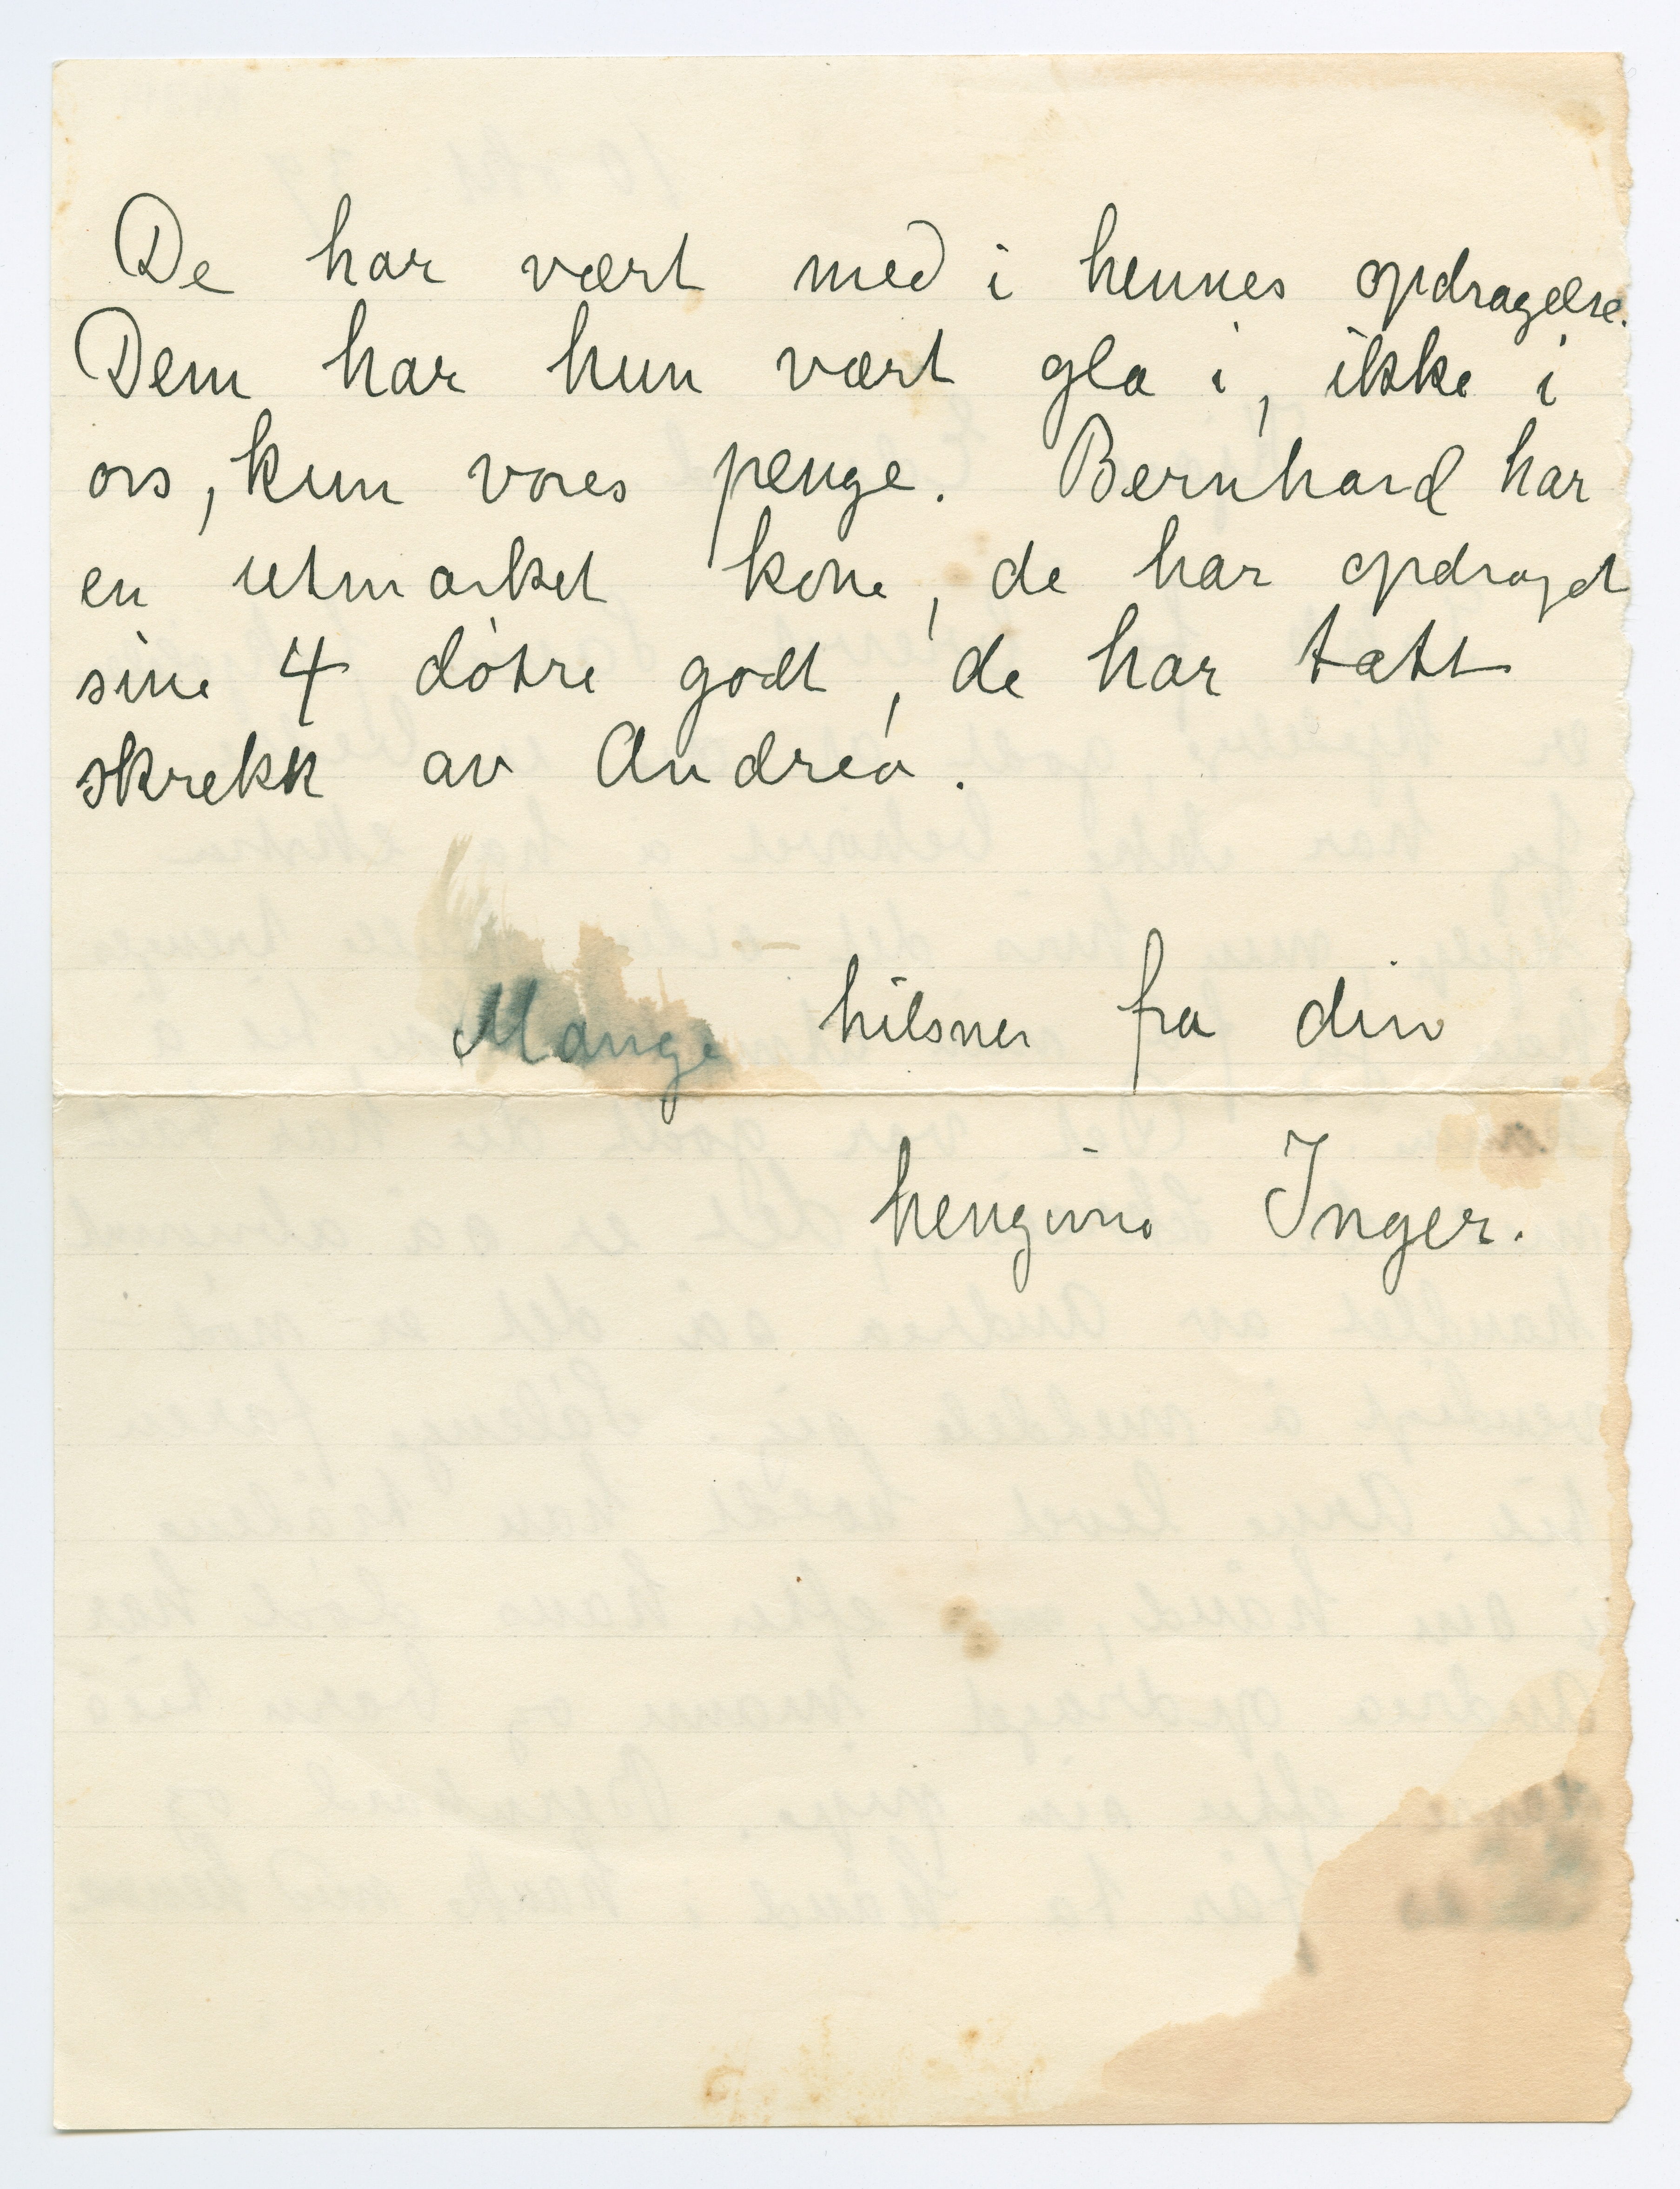 De har vært med i hennes opdragelse.
Dem har hun vært gla i, ikke i
oss, kun vores penge. Bernhard har
en utmerket kone, de har opdraget
sine 4 døtre godt, de har tatt
skrekk av Andrea.
Mange hilsner fra din
hengivne Inger.